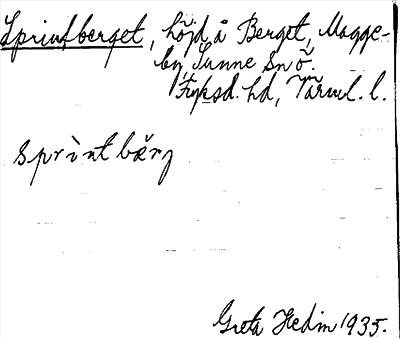 Sprintberget, höjd å Berget, Magge-
by Sunne sn ö.
Fryksd. hd, Värml. l.
sprìntbærj
Greta Hedin 1935.